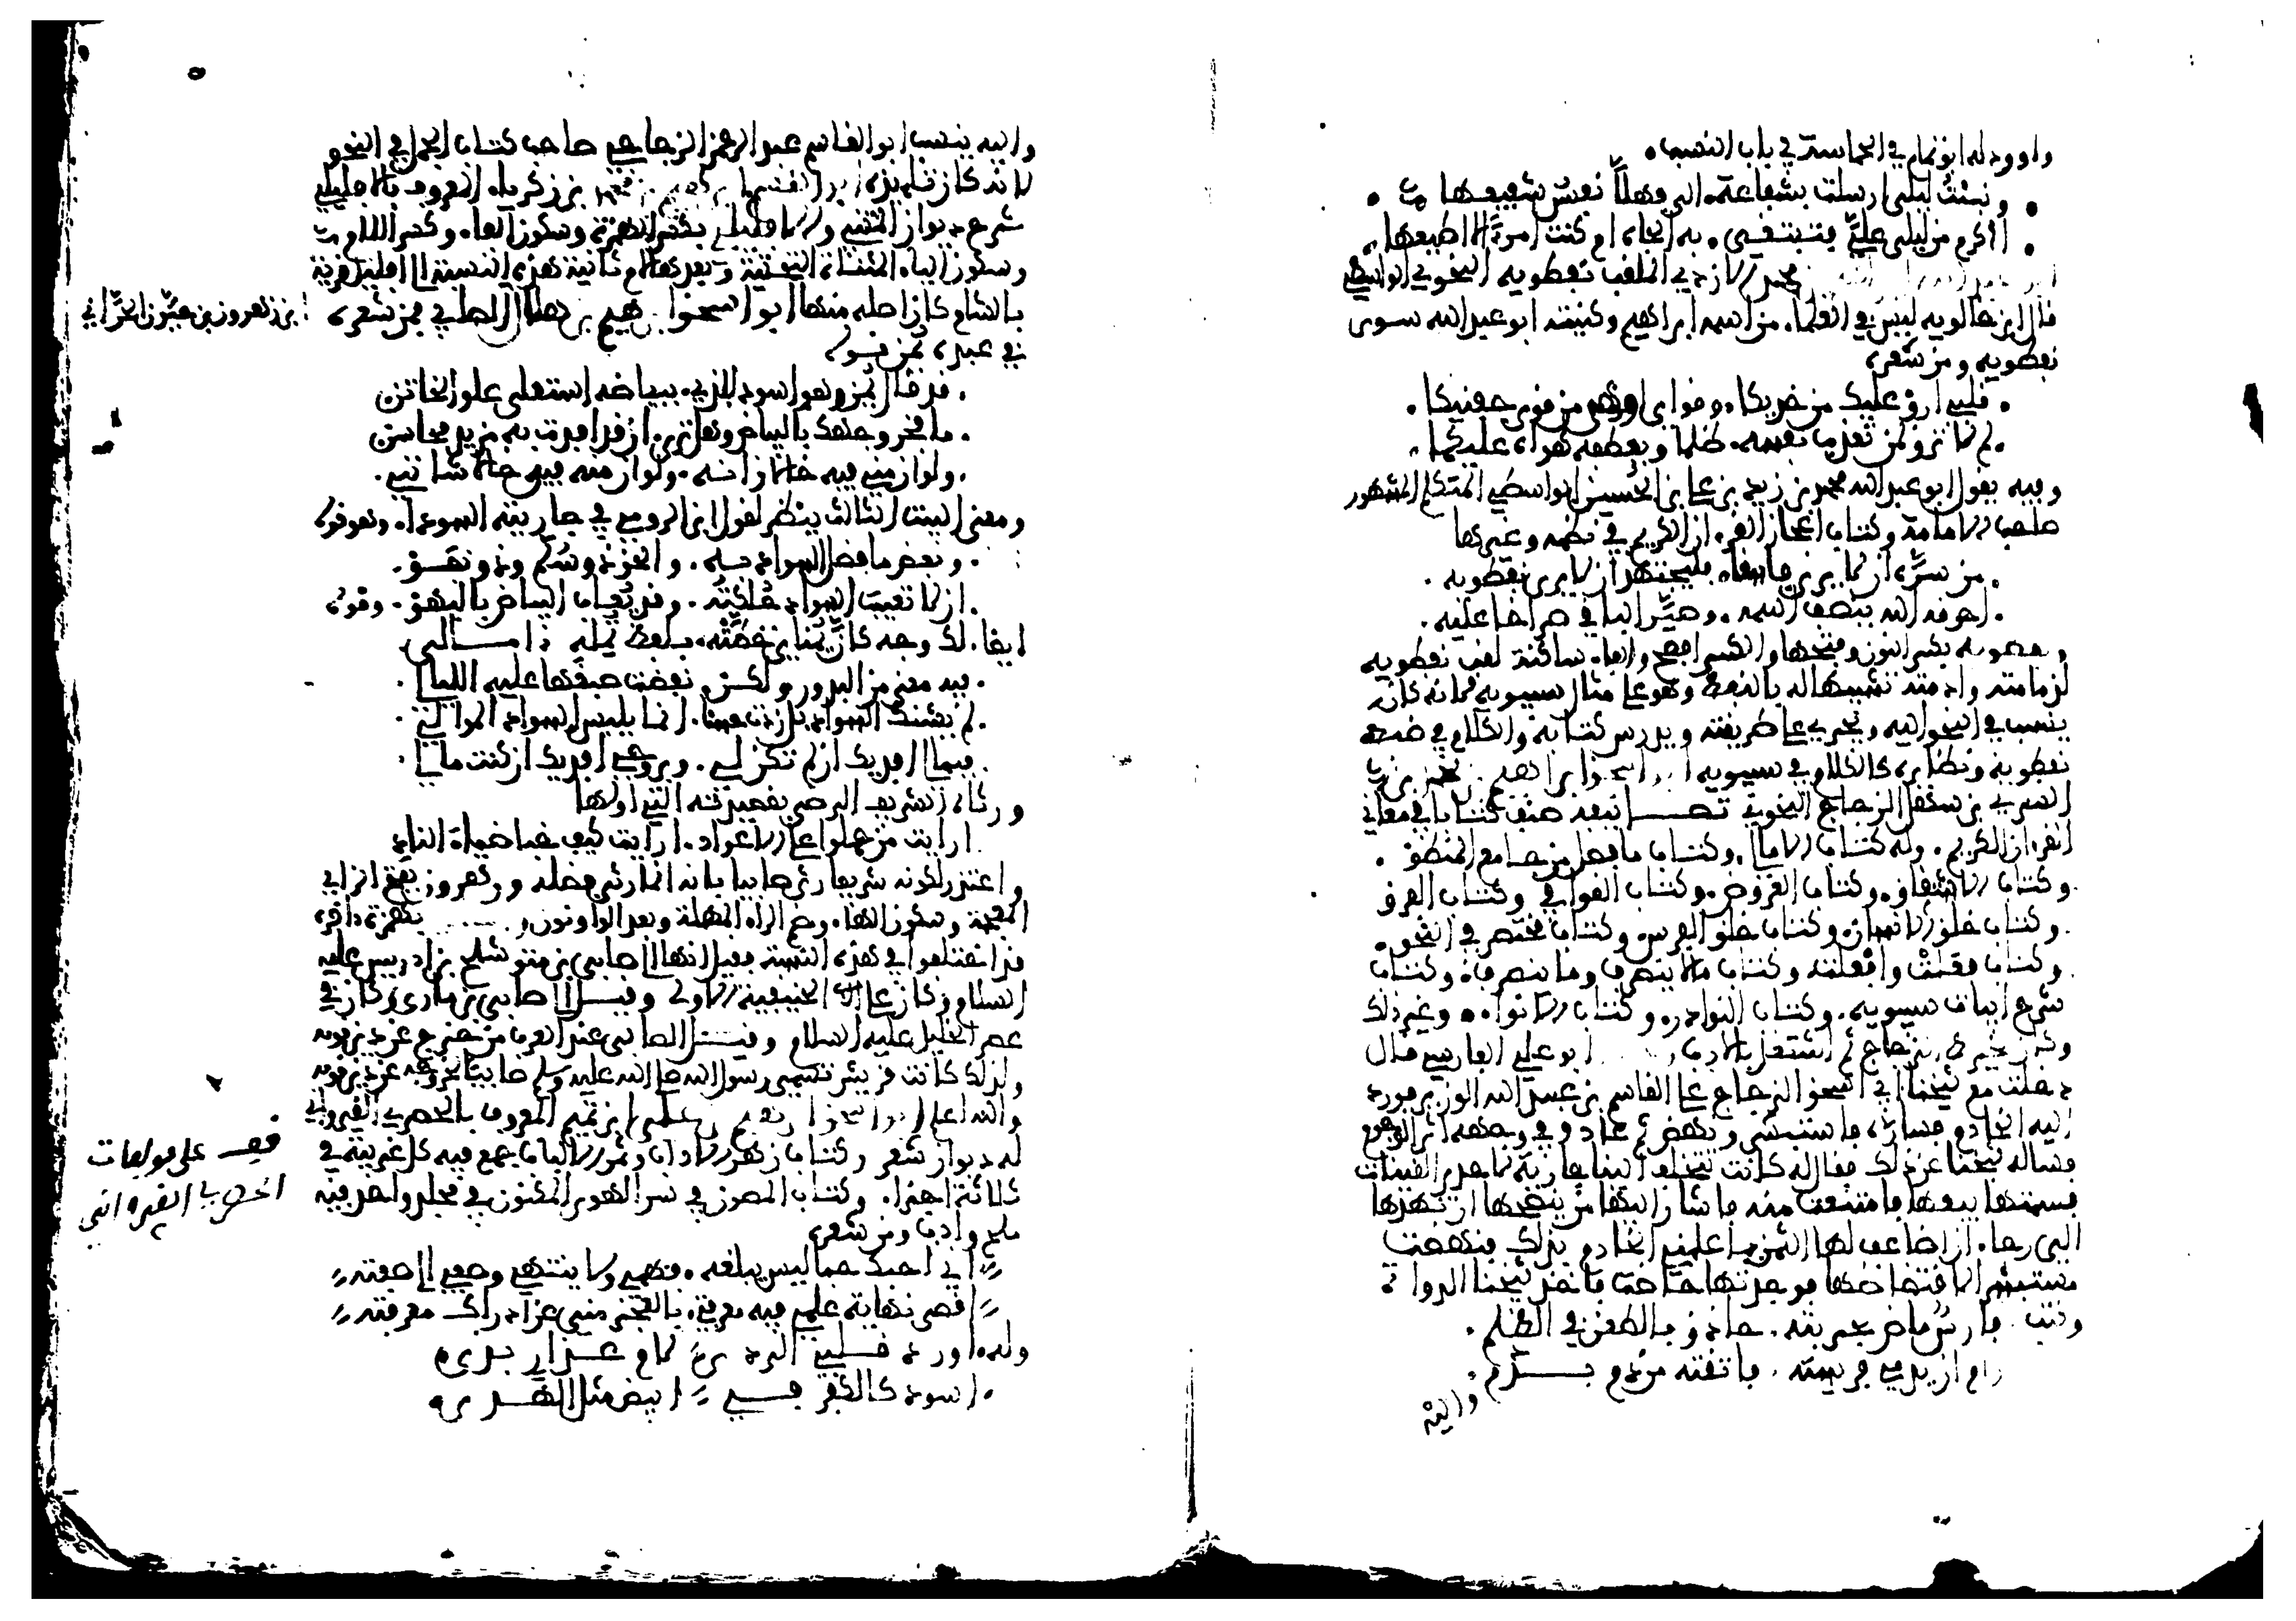 واورد له ابو تمام في الحماسة في باب النسيب
ونبئت ليلى ارسلت بشفاعة الي فهلا نفس ليلى شفيعها
أأكرم من ليلى علي فتبتغى به الجاه ام كنت امرءا لا اطيعها
محمد الازدي الملقب نفطويه النحوي الواسطي
قال ابن خالويه ليس في العلماء من اسمه ابراهيم وكنيته ابو عبد الله سوى
نفطويه ومن شعره
قلبي ارق عليك من خديكا وقواي اوهى من قوى جفنيكا
لم لا ترق لمن تعذب نفسه ظلما ويعطفه هواه عليكا
وفيه يقول ابو عبد الله محمد بن زيد بن علي بن الحسين الواسطي المتكلم المشهور
صاحب الامامة وكتاب اعجاز القرءان الكريم في نظمه وغيرها
من سره ان لا يرى فاسقا فليجتهد ان لا يرى نفطويه
احرقه الله بنصف اسمه وصير الباقي صراخا عليه
ونفطويه بكسر النون وفتحها والكسر افصح والفاء ساكنة لقب نفطويه
لدمامته وادمته تشبيها له بالنفط وهو على مثال سيبويه لانه كان
ينسب في النحو اليه ويجري على طريقته ويدرس كتابه والكلام في ضبط
نفطويه ونظائره كالكلام في سيبويه ابو اسحق ابراهيم بن محمد بن
السري بن سهل الزجاج النحوي صنف كتابا في معاني
القرءان الكريم وله كتاب الامالي وكتاب ما فسر من جامع المنطق
وكتاب الاشتقاق وكتاب العروض وكتاب القوافي وكتاب الفرق
وكتاب خلق الانسان وكتاب خلق الفرس وكتاب مختصر في النحو
وكتاب فعلت وافعلت وكتاب ما لا ينصرف وما ينصرف وكتاب
شرح ابيات سيبويه وكتاب النوادر وكتاب الانواء وغير ذلك
وكان يخرط الزجاج ثم اشتغل بالادب ابو علي الفارسي قال
دخلت مع شيخنا ابي اسحق الزجاج على القاسم بن عبيد الله الوزير فورد
اليه الخادم فساره فاستبشر ونهض ثم عاد وفي وجهه اثر الوجوم
فساله شيخنا عن ذلك فقال له كانت تختلف الينا جارية لاحدى القينات
فسمتها بيعها فامتنعت منه فاشار اليها من ينصحها ان تهديها
الي رجاء ان اضاعف لها الثمن فاعلمني الخادم بذلك فنهضت
مستبشرا لافتضاضها فوجدتها حاضت فاخذ شيخنا الدواة
وكتب فارس ماض بحربته حاذق بالطعن في الظلم
رام ان يدمي فريسته فاتقته من دم بدم
واليه
واليه ينسب ابو القاسم عبد الرحمن الزجاجي صاحب كتاب الجمل في النحو
لانه كان تلميذه ابو القسم ابراهيم بن محمد بن زكرياء المعروف بالافليلي
شرح ديوان المتنبي والافليلي بكسر الهمزة وسكون الفاء وكسر اللام
وسكون الياء المثناة التحتية وبعدها لام ثانية هذه النسبة الى افليل قرية
بالشام كان اصله منها ابو اسحق ابرهيم بن هلال الصابي فمن شعره
ابن زهرون بن حبون الحراني
في عبده يمن قوله
قد قال يمن وهو اسود للذي ببياضه استعلى علو الخاتن
ما فخر وجهك بالبياض وهل ترى ان قد افدت به مزيد محاسن
ولو ان مني فيه خالا زانه ولو ان منه في خالا شانني
ومعنى البيت الثالث ينظر لقول ابن الرومي في جارية السوداء وهو قوله
وبعض ما فضل السواد به والحق ذو سلم وذو نفق
ان لا تعيب السواد حلكته وقد يعاب البياض بالبهق وقوله
ايضا لك وجه كان يمناي خطته بلفظ تمله ءامالي
فيه معنى من البدور ولكن نفضت صبغها عليه الليالي
لم يشنك السواد بل زدت حسنا انما يلبس السواد الموالي
فبمالي افديك ان لم تكن لي وبروحي افديك ان كنت مالي
ورثاه الشريف الرضي بقصيدته التي اولها
ارايت من حملوا على الاعواد ارايت كيف خبا ضياء النادي
واعتذر لكونه شريفا رثى صابيا بانه انما رثى فضله وزهرون بفتح الزاي
المعجمة وسكون الهاء وضم الراء المهملة وبعد الواو نون بهمزة ءاخره
قد اختلفوا في هذه النسبة فقيل انها الى صابي بن متوشلح بن ادريس عليه
السلام وكان على الحنيفية الاولى وقيل الى صابي بن ماري وكان في
عصر الخليل عليه السلام وقيل الصابي عند العرب من خرج عن دين قومه
ولذلك كانت قريش تسمي رسول الله صلى الله عليه وسلم صابيا لخروجه عن دين قومه
والله اعلم ابو اسحق ابراهيم بن علي ابن تميم المعروف بالحصري القيرواني
له ديوان شعر وكتاب زهر الاداب وثمر الالباب جمع فيه كل غريبة في
ثلاثة اجزاء وكتاب المصون في سر الهوى المكنون في مجلد واحد فيه
ملح واداب ومن شعره
قف على مولفات
الحصري القيرواني
اني احبك حبا ليس يبلغه فهمي ولا ينتهي وصفي الى صفته
اقصى نهاية علمي فيه معرفتي بالعجز مني عن ادراك معرفته
وله اورد قلبي الردى لام عذار بدى
اسود كالكفر في ابيض مثل الهدى